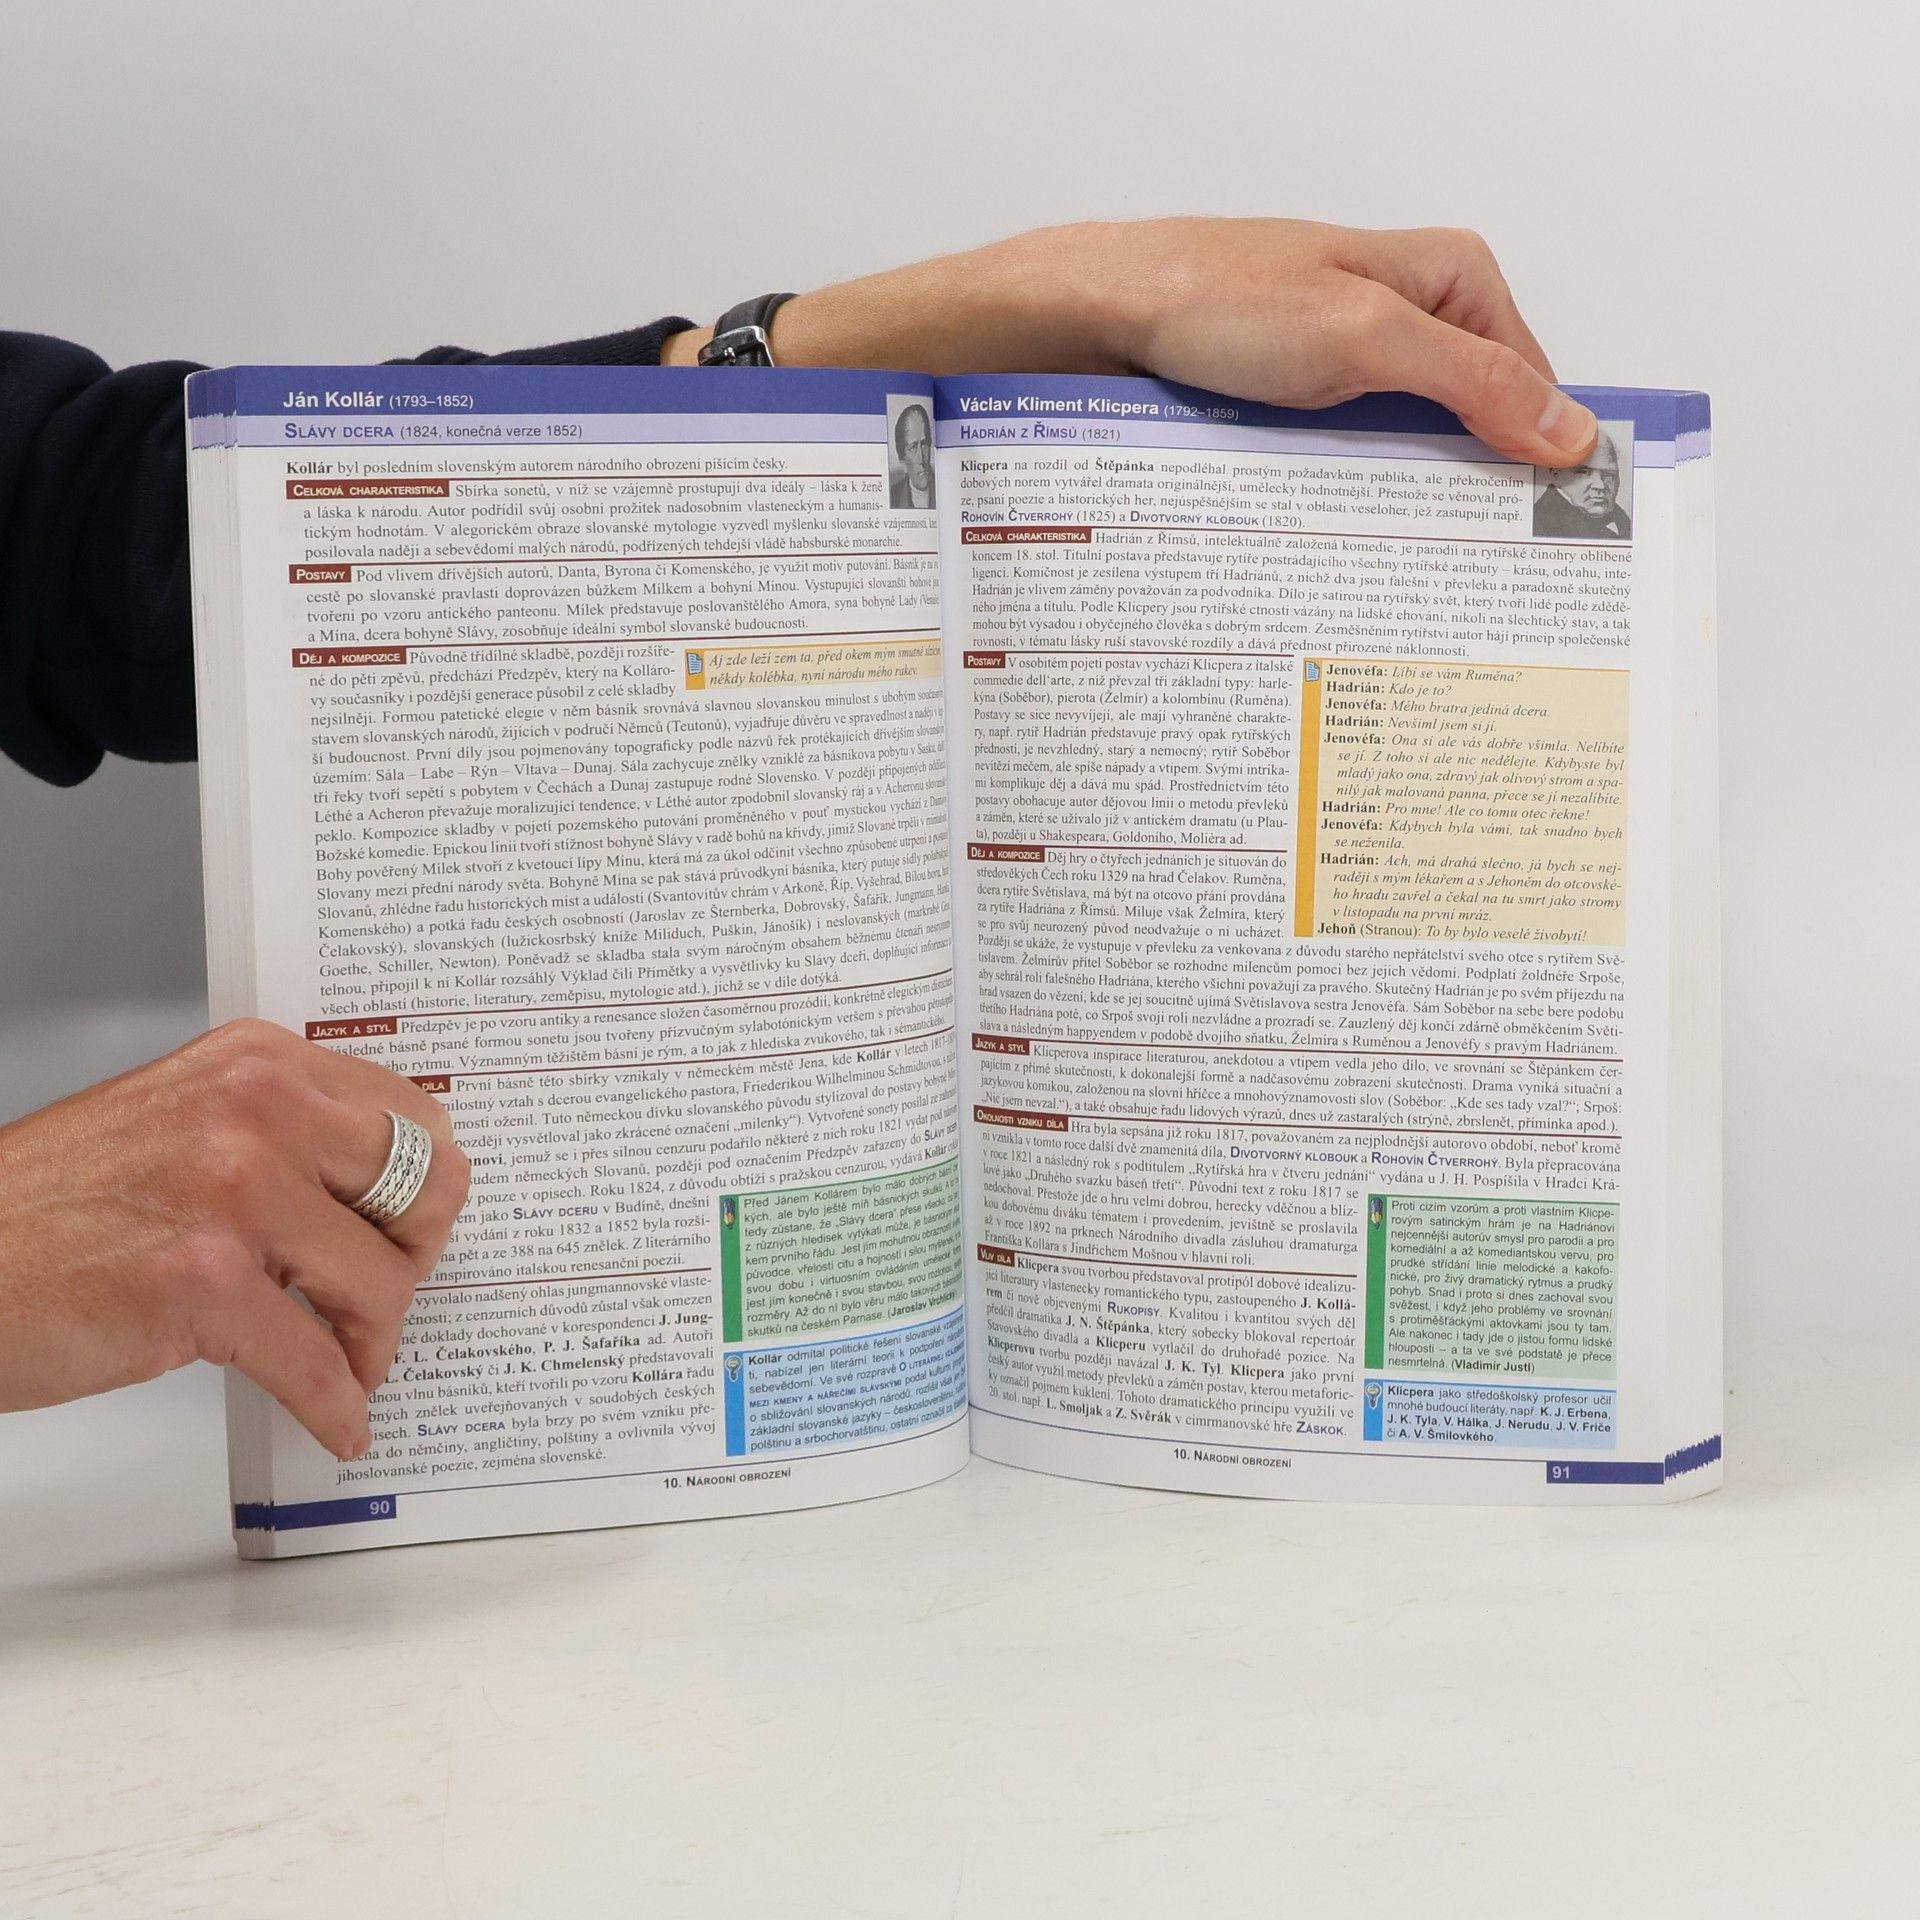 Ján Kollár (1793–1852)
SLÁVY DCERA (1824, konečná verze 1852)
Kollár byl posledním slovenským autorem národního obrození píšícím česky.
CELKOVÁ CHARAKTERISTIKA Sbírka sonetů, v níž se vzájemně prostupují dva ideály – láska k ženě
a láska k národu. Autor podřídil svůj osobní prožitek nadosobním vlasteneckým a humanis-
tickým hodnotám. V alegorickém obraze slovanské mytologie vyzvedl myšlenku slovanské vzájemnosti,
posilovala naději a sebevědomí malých národů, podřízených tehdejší vládě habsburské monarchie.
POSTAVY Pod vlivem dřívějších autorů, Danta, Byrona či Komenského, je využit motiv putování. Básník je na
cestě po slovanské pravlasti doprovázen bůžkem Milkem a bohyní Mínou. Vystupující slovanští bohové
tvořeni po vzoru antického panteonu. Mílek představuje poslovanštělého Amora, syna bohyně Lady
a Mína, dcera bohyně Slávy, zosobňuje ideální symbol slovanské budoucnosti.
DĚJ A KOMPOZICE Původně třídílné skladbě, později rozšíře-
né do pěti zpěvů, předchází Předzpěv, který na Kolláro-
vy současníky i pozdější generace působil z celé skladby
Aj zde leží zem ta, před okem mým smutně
někdy kolébka, nyní národu mého rakev.
nejsilněji. Formou patetické elegie v něm básník srovnává slavnou slovanskou minulost s ubohým
stavem slovanských národů, žijících v područí Němců (Teutonů), vyjadřuje důvěru ve spravedlnost a naději v
ší budoucnost. První díly jsou pojmenovány topograficky podle názvů řek protékajících dřívějším
územím: Sála – Labe – Rýn – Vltava – Dunaj. Sála zachycuje znělky vzniklé za básníkova pobytu v Sasku,
tři řeky tvoří sepětí s pobytem v Čechách a Dunaj zastupuje rodné Slovensko. V později připojených
Léthé a Acheron převažuje moralizující tendence, v Léthé autor zpodobnil slovanský ráj a v Acheronu
peklo. Kompozice skladby v pojetí pozemského putování proměněného v pouť mystickou vychází z
Božské komedie. Epickou linii tvoří stížnost bohyně Slávy v radě bohů na křivdy, jimiž Slované trpěli v
Bohy pověřený Mílek stvoří z kvetoucí lípy Mínu, která má za úkol odčinit všechno způsobené utrpení a
Slovany mezi přední národy světa. Bohyně Mína se pak stává průvodkyní básníka, který putuje sídly
Slovanů, zhlédne řadu historických míst a událostí (Svantovítův chrám v Arkoně, Říp, Vyšehrad, Bílou
Komenského) a potká řadu českých osobností (Jaroslav ze Šternberka, Dobrovský, Šafařík, Jungmann,
Čelakovský), slovanských (lužickosrbský kníže Miliduch, Puškin, Jánošík) i neslovanských
Goethe, Schiller, Newton). Poněvadž se skladba stala svým náročným obsahem běžnému čtenáři
telnou, připojil k ní Kollár rozsáhlý Výklad čili Přímětky a vysvětlivky ku Slávy dceři, doplňující
všech oblastí (historie, literatury, zeměpisu, mytologie atd.), jichž se v díle dotýká.
JAZYK A STYL Předzpěv je po vzoru antiky a renesance složen časoměrnou prozódií, konkrétně elegickým
básně psané formou sonetu jsou tvořeny přízvučným sylabotónickým veršem s převahou
rytmu. Významným těžištěm básní je rým, a to jak z hlediska zvukového, tak i sémantického.
DÍLA První básně této sbírky vznikaly v německém městě Jena, kde Kollár v letech
vztah s dcerou evangelického pastora, Friederikou Wilhelminou Schmidtovou,
oženil. Tuto německou dívku slovanského původu stylizoval do postavy bohyně
později vysvětloval jako zkrácené označení „milenky“). Vytvořené sonety posílal ze
jemuž se i přes silnou cenzuru podařilo některé z nich roku 1821 vydat pod
německých Slovanů, později pod označením Předzpěv zařazeny do SLÁVY
pouze v opisech. Roku 1824, z důvodu obtíží s pražskou cenzurou, vydává Kollár
jako SLÁVY DCERU v Budíně, dnešní
vydání z roku 1832 a 1852 byla rozší-
na pět a ze 388 na 645 znělek. Z literárního
inspirováno italskou renesanční poezií.
vyvolalo nadšený ohlas jungmannovské vlaste-
z cenzurních důvodů zůstal však omezen
doklady dochované v korespondenci J. Jung-
F. L. Čelakovského, P. J. Šafaříka ad. Autoři
Čelakovský či J. K. Chmelenský představovali
vlnu básníků, kteří tvořili po vzoru Kollára řadu
znělek uveřejňovaných v soudobých českých
SLÁVY DCERA byla brzy po svém vzniku pře-
do němčiny, angličtiny, polštiny a ovlivnila vývoj
jihoslovanské poezie, zejména slovenské.
Před Jánem Kollárem bylo málo dobrých
kých, ale bylo ještě míň básnických skutků.
tedy zůstane, že „Slávy dcera“ přese všecko,
z různých hledisek vytýkati může, je
kem prvního řádu. Jest jím mohutnou
původce, vřelostí citu a hojností i silou
svou dobu i virtuosním ovládáním umělecké
jest jím konečně i svou stavbou, svou
rozměry. Až do ní bylo věru málo takových
skutků na českém Parnase. (Jaroslav Vrchlický)
Kollár odmítal politické řešení slovanské
ti, nabízel jen literární teorii k podpoření
sebevědomí. Ve své rozpravě O LITERÁRNEJ
MEZI KMENY A NÁŘEČÍMI SLÁVSKÝMI podal kulturní program
o sbližování slovanských národů, rozlišil však
základní slovanské jazyky – československštinu,
polštinu a srbochorvatštinu, ostatní označil za
10. NÁRODNÍ OBROZENÍ
90
Václav Kliment Klicpera (1792–1859)
HADRIÁN Z ŘÍMSŮ (1821)
Klicpera na rozdíl od Štěpánka nepodléhal prostým požadavkům publika, ale překročením
dobových norem vytvářel dramata originálnější, umělecky hodnotnější. Přestože se věnoval pró-
ze, psaní poezie a historických her, nejúspěšnějším se stal v oblasti veseloher, jež zastupují např.
ROHOVÍN ČTVERROHÝ (1825) a DIVOTVORNÝ KLOBOUK (1820).
CELKOVÁ CHARAKTERISTIKA Hadrián z Římsů, intelektuálně založená komedie, je parodií na rytířské činohry oblíbené
koncem 18. stol. Titulní postava představuje rytíře postrádajícího všechny rytířské atributy – krásu, odvahu, inte-
ligenci. Komičnost je zesílena výstupem tří Hadriánů, z nichž dva jsou falešní v převleku a paradoxně skutečný
Hadrián je vlivem záměny považován za podvodníka. Dílo je satirou na rytířský svět, který tvoří lidé podle zděděn-
ného jména a titulu. Podle Klicpery jsou rytířské ctnosti vázány na lidské chování, nikoli na šlechtický stav, a tak
mohou být výsadou i obyčejného člověka s dobrým srdcem. Zesměšněním rytířství autor hájí princip společenské
rovnosti, v tématu lásky ruší stavovské rozdíly a dává přednost přirozené náklonnosti.
POSTAVY V osobitém pojetí postav vychází Klicpera z italské
commedie dell‘arte, z níž převzal tři základní typy: harle-
kýna (Soběbor), pierota (Želmír) a kolombínu (Ruměna).
Postavy se sice nevyvíjejí, ale mají vyhraněné charakte-
ry, např. rytíř Hadrián představuje pravý opak rytířských
předností, je nevzhledný, starý a nemocný; rytíř Soběbor
nevítězí mečem, ale spíše nápady a vtipem. Svými intrika-
mi komplikuje děj a dává mu spád. Prostřednictvím této
postavy obohacuje autor dějovou linii o metodu převleků
a záměn, které se užívalo již v antickém dramatu (u Plau-
ta), později u Shakespeara, Goldoniho, Molièra ad.
Jenovéfa: Líbí se vám Ruměna?
Hadrián: Kdo je to?
Jenovéfa: Mého bratra jediná dcera.
Hadrián: Nevšiml jsem si jí.
Jenovéfa: Ona si ale vás dobře všimla. Nelíbíte
se jí. Z toho si ale nic nedělejte. Kdybyste byl
mladý jako ona, zdravý jak olivový strom a spa-
nilý jak malovaná panna, přece se jí nezalíbíte.
Hadrián: Pro mne! Ale co tomu otec řekne!
Jenovéfa: Kdybych byla vámi, tak snadno bych
se neženila.
Hadrián: Ach, má drahá slečno, já bych se nej-
raději s mým lékařem a s Jehoněm do otcovské-
ho hradu zavřel a čekal na tu smrt jako stromy
v listopadu na první mráz.
Jehoň (Stranou): To by bylo veselé živobytí!
DĚJ A KOMPOZICE Děj hry o čtyřech jednáních je situován do
středověkých Čech roku 1329 na hrad Čelakov. Ruměna,
dcera rytíře Světislava, má být na otcovo přání provdána
za rytíře Hadriána z Římsů. Miluje však Želmíra, který
se pro svůj neurozený původ neodvažuje o ni ucházet.
Později se ukáže, že vystupuje v převleku za venkovana z důvodu starého nepřátelství svého otce s rytířem Svě-
tislavem. Želmírův přítel Soběbor se rozhodne milencům pomoci bez jejich vědomí. Podplatí žoldnéře Srpoše,
aby sehrál roli falešného Hadriána, kterého všichni považují za pravého. Skutečný Hadrián je po svém příjezdu na
hrad vsazen do vězení, kde se jej soucitně ujímá Světislavova sestra Jenovéfa. Sám Soběbor na sebe bere podobu
třetího Hadriána poté, co Srpoš svoji roli nezvládne a prozradí se. Zauzlený děj končí zdárně obměkčením Světi-
slava a následným happyendem v podobě dvojího sňatku, Želmíra s Ruměnou a Jenovéfy s pravým Hadriánem.
JAZYK A STYL Klicperova inspirace literaturou, anekdotou a vtipem vedla jeho dílo, ve srovnání se Štěpánkem čer-
pajícím z přímé skutečnosti, k dokonalejší formě a nadčasovému zobrazení skutečnosti. Drama vyniká situační a
jazykovou komikou, založenou na slovní hříčce a mnohovýznamovosti slov (Soběbor: „Kde ses tady vzal?“; Srpoš:
„Nic jsem nevzal.“), a také obsahuje řadu lidových výrazů, dnes už zastaralých (strýně, zbrslenět, přímínka apod.).
OKOLNOSTI VZNIKU DÍLA Hra byla sepsána již roku 1817, považovaném za nejplodnější autorovo období, neboť kromě
ní vznikla v tomto roce další dvě znamenitá díla, DIVOTVORNÝ KLOBOUK a ROHOVÍN ČTVERROHÝ. Byla přepracována
v roce 1821 a následný rok s podtitulem „Rytířská hra v čtveru jednání“ vydána u J. H. Pospíšila v Hradci Krá-
lové jako „Druhého svazku báseň třetí“. Původní text z roku 1817 se
nedochoval. Přestože jde o hru velmi dobrou, herecky vděčnou a blíz-
kou dobovému diváku tématem i provedením, jevištně se proslavila
až v roce 1892 na prknech Národního divadla zásluhou dramaturga
Františka Kollára s Jindřichem Mošnou v hlavní roli.
VLIV DÍLA Klicpera svou tvorbou představoval protipól dobové idealizu-
jící literatury vlastenecky romantického typu, zastoupeného J. Kollá-
rem či nově objevenými RUKOPISY. Kvalitou i kvantitou svých děl
předčil dramatika J. N. Štěpánka, který sobecky blokoval repertoár
Stavovského divadla a Klicperu vytlačil do druhořadé pozice. Na
Klicperovu tvorbu později navázal J. K. Tyl. Klicpera jako první
český autor využil metody převleků a záměn postav, kterou metaforic-
ky označil pojmem kuklení. Tohoto dramatického principu využili ve
20. stol. např. L. Smoljak a Z. Svěrák v cimrmanovské hře ZÁSKOK.
Proti cizím vzorům a proti vlastním Klicpe-
rovým satirickým hrám je na Hadriánovi
nejcennější autorův smysl pro parodii a pro
komediální a až komediantskou vervu, pro
prudké střídání linie melodické a kakofo-
nické, pro živý dramatický rytmus a prudký
pohyb. Snad i proto si dnes zachoval svou
svěžest, i když jeho problémy ve srovnání
s protiměšťáckými aktovkami jsou ty tam.
Ale nakonec i tady jde o jistou formu lidské
hlouposti – a ta ve své podstatě je přece
nesmrtelná. (Vladimír Justl)
Klicpera jako středoškolský profesor učil
mnohé budoucí literáty, např. K. J. Erbena,
J. K. Tyla, V. Hálka, J. Nerudu, J. V. Friče
či A. V. Šmilovkého.
10. NÁRODNÍ OBROZENÍ
91